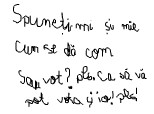 Spuneți mi și mie
cum se dă com
Sau vot? pls. Ca să vă
pot vota și io! pls!